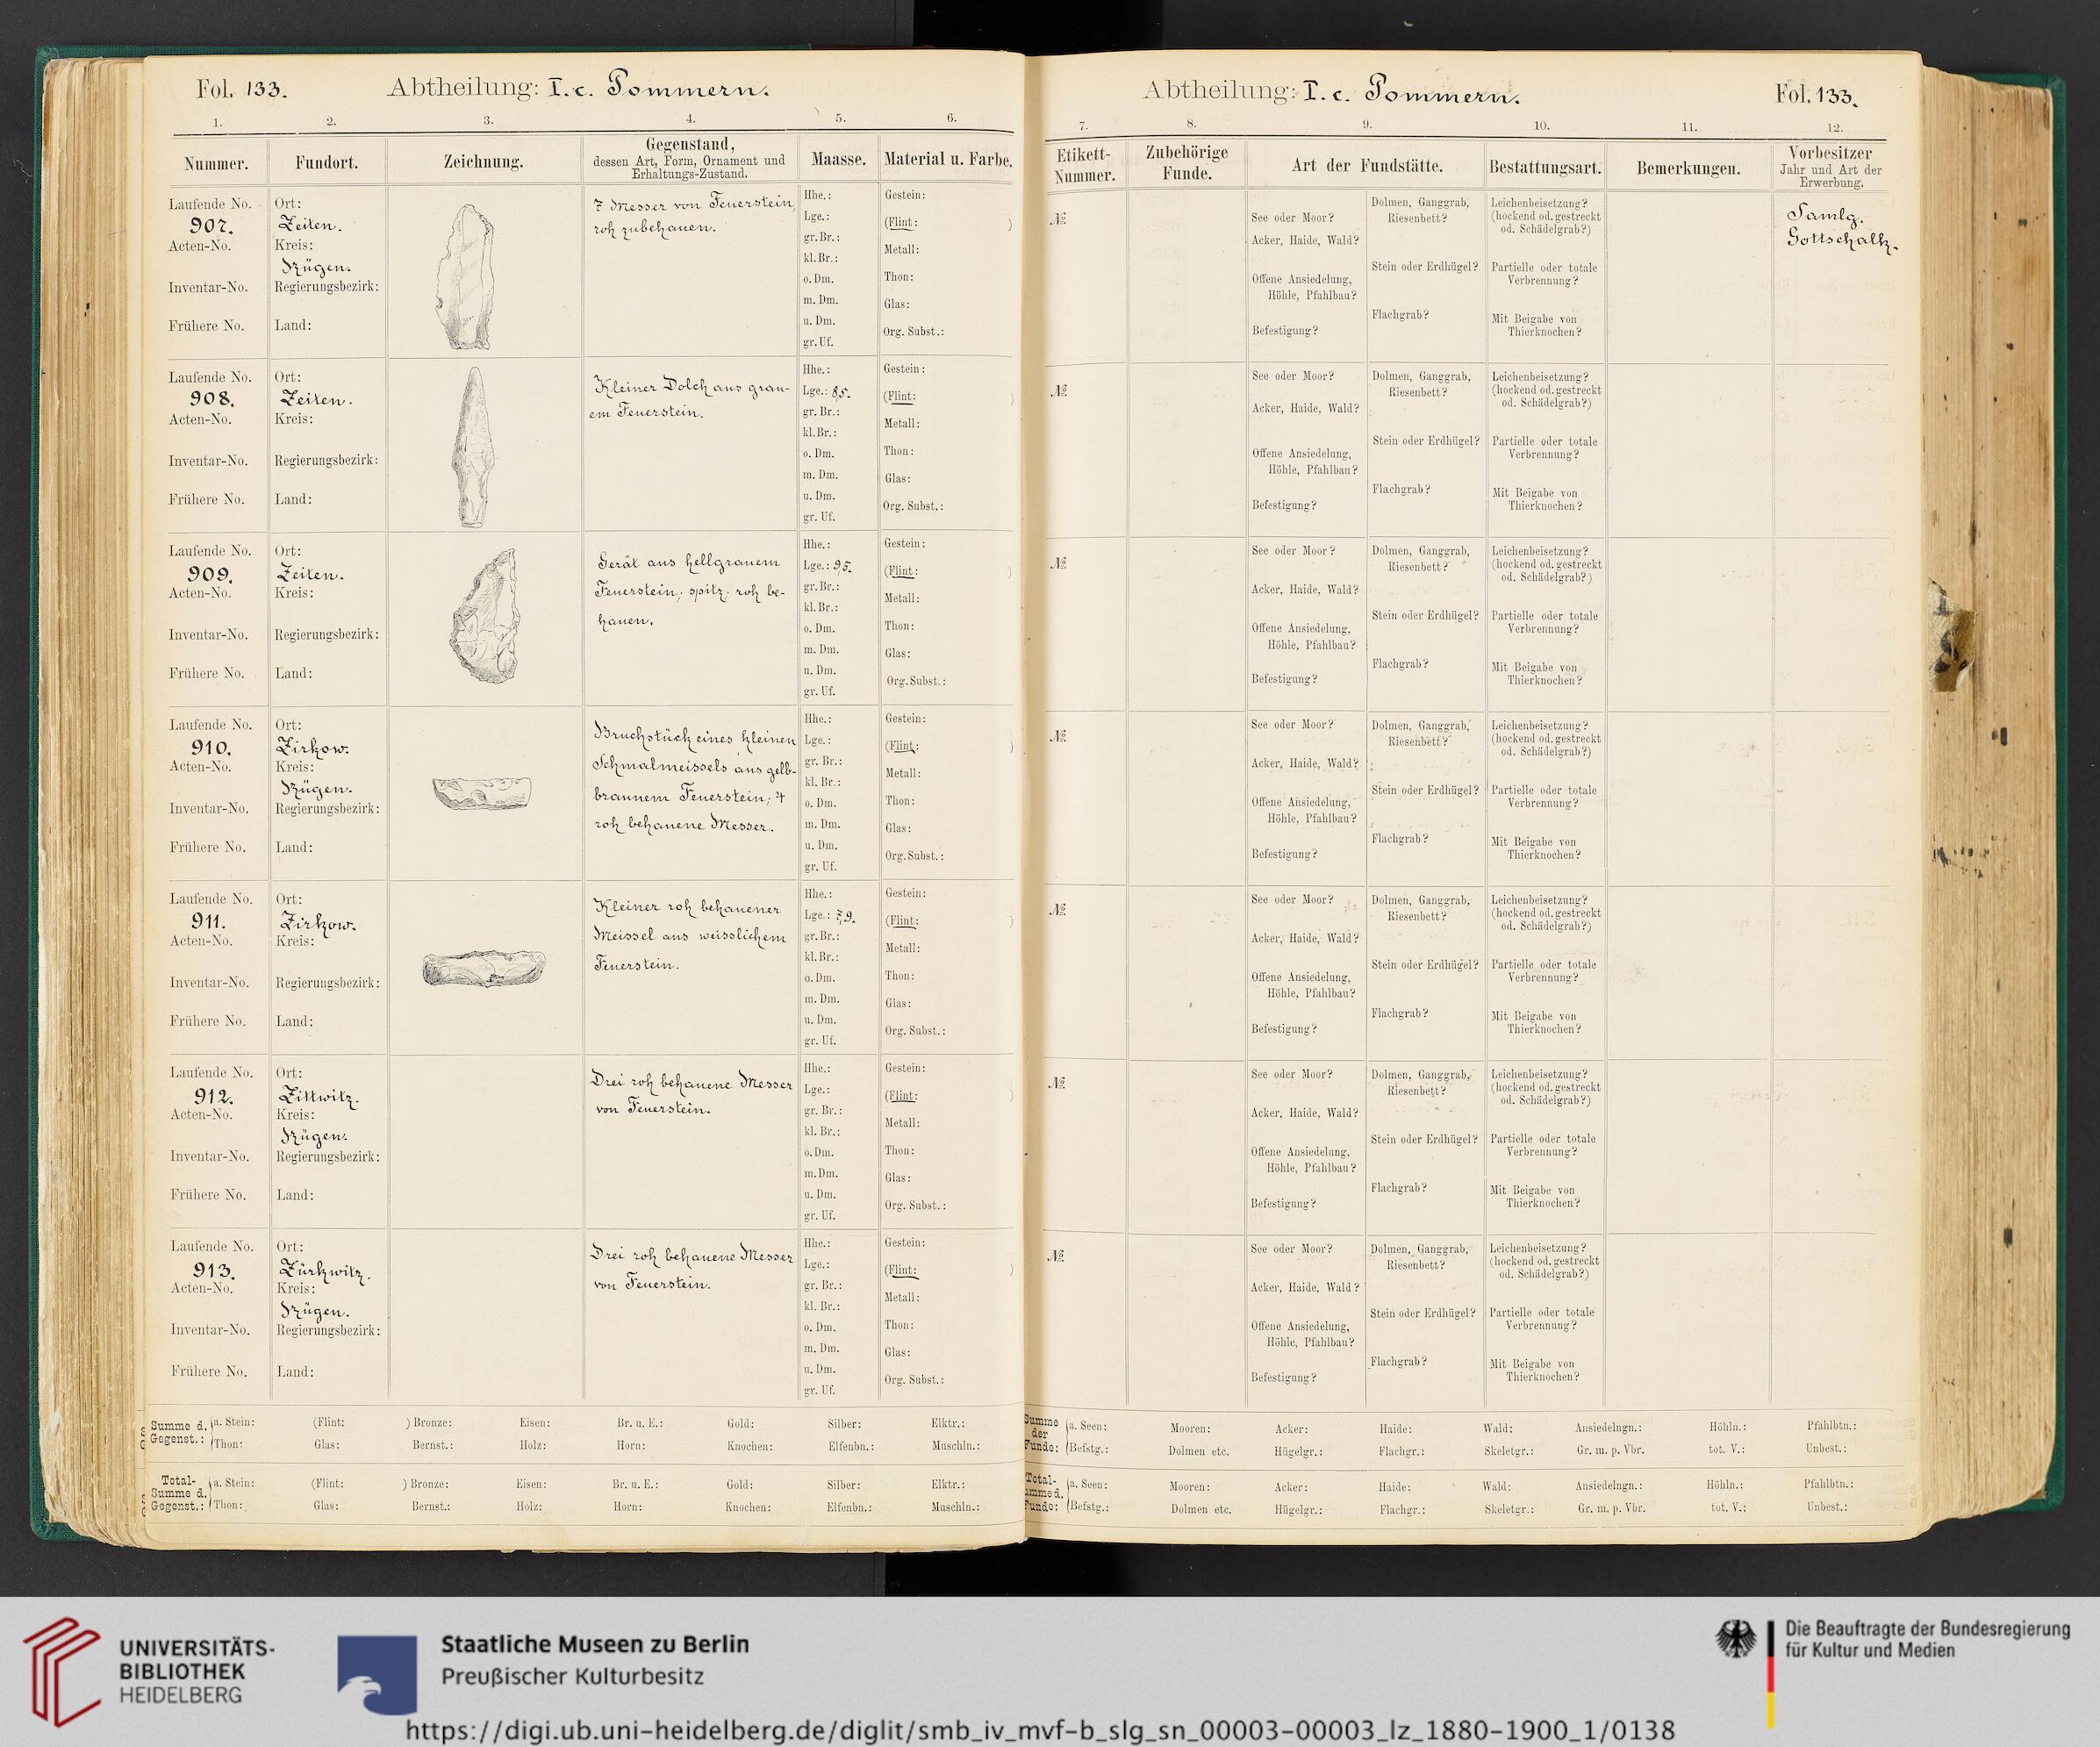 Fol. 133.
Abtheilung: I. c. Pommern.
1. 2. 3. 4. 5. 6.
Nummer. Fundort. Zeichnung. Gegenstand, dessen Art, Form, Ornament und Erhaltungs-Zustand. Maasse. Material u. Farbe.
Laufende No.
907.
Acten-No.
Inventar-No.
Frühere No.
Ort:
Zeiten.
Kreis:
Rügen.
Regierungsbezirk:
Land:
7 Messer von Feuerstein,
roh zubehauen.
Hhe.:
Lge.:
gr. Br.:
kl. Br.:
o. Dm.
m. Dm.
u. Dm.
gr. Uf.
Gestein:
(Flint: )
Metall:
Thon:
Glas:
Org. Subst.:
Laufende No.
908.
Acten-No.
Inventar-No.
Frühere No.
Ort:
Zeiten.
Kreis:
Regierungsbezirk:
Land:
Kleiner Dolch aus grau-
em Feuerstein.
Hhe.:
Lge.: 8,5.
gr. Br.:
kl. Br.:
o. Dm.
m. Dm.
u. Dm.
gr. Uf.
Gestein:
(Flint: )
Metall:
Thon:
Glas:
Org. Subst.:
Laufende No.
909.
Acten-No.
Inventar-No.
Frühere No.
Ort:
Zeiten.
Kreis:
Regierungsbezirk:
Land:
Gerät aus hellgrauem
Feuerstein; spitz; roh be-
hauen.
Hhe.:
Lge.: 9,5.
gr. Br.:
kl. Br.:
o. Dm.
m. Dm.
u. Dm.
gr. Uf.
Gestein:
(Flint: )
Metall:
Thon:
Glas:
Org. Subst.:
Laufende No.
910.
Acten-No.
Inventar-No.
Frühere No.
Ort:
Zirkow.
Kreis:
Rügen.
Regierungsbezirk:
Land:
Bruchstück eines kleinen
Schmalmeissels aus gelb-
braunem Feuerstein; 4
roh behauene Messer.
Hhe.:
Lge.:
gr. Br.:
kl. Br.:
o. Dm.
m. Dm.
u. Dm.
gr. Uf.
Gestein:
(Flint: )
Metall:
Thon:
Glas:
Org. Subst.:
Laufende No.
911.
Acten-No.
Inventar-No.
Frühere No.
Ort:
Zirkow.
Kreis:
Regierungsbezirk:
Land:
Kleiner roh behauener
Meissel aus weisslichem
Feuerstein.
Hhe.:
Lge.: 7,9.
gr. Br.:
kl. Br.:
o. Dm.
m. Dm.
u. Dm.
gr. Uf.
Gestein:
(Flint: )
Metall:
Thon:
Glas:
Org. Subst.:
Laufende No.
912.
Acten-No.
Inventar-No.
Frühere No.
Ort:
Zittwitz.
Kreis:
Rügen.
Regierungsbezirk:
Land:
Drei roh behauene Messer
von Feuerstein.
Hhe.:
Lge.:
gr. Br.:
kl. Br.:
o. Dm.
m. Dm.
u. Dm.
gr. Uf.
Gestein:
(Flint: )
Metall:
Thon:
Glas:
Org. Subst.:
Laufende No.
913.
Acten-No.
Inventar-No.
Frühere No.
Ort:
Zürkwitz.
Kreis:
Rügen.
Regierungsbezirk:
Land:
Drei roh behauene Messer
von Feuerstein.
Hhe.:
Lge.:
gr. Br.:
kl. Br.:
o. Dm.
m. Dm.
u. Dm.
gr. Uf.
Gestein:
(Flint: )
Metall:
Thon:
Glas:
Org. Subst.:
Summe d. Gegenst.:
a. Stein: (Flint: ) Bronze: Eisen: Br. u. E.: Gold: Silber: Elktr.:
Thon: Glas: Bernst.: Holz: Horn: Knochen: Elfenbn.: Muschln.:
Total-Summe d. Gegenst.:
a. Stein: (Flint: ) Bronze: Eisen: Br. u. E.: Gold: Silber: Elktr.:
Thon: Glas: Bernst.: Holz: Horn: Knochen: Elfenbn.: Muschln.:
Abtheilung: I. c. Pommern.
Fol. 133.
7. 8. 9. 10. 11. 12.
Etikett-Nummer. Zubehörige Funde. Art der Fundstätte. Bestattungsart. Bemerkungen. Vorbesitzer Jahr und Art der Erwerbung.
№
See oder Moor?
Acker, Haide, Wald?
Offene Ansiedelung,
Höhle, Pfahlbau?
Befestigung?
Dolmen, Ganggrab,
Riesenbett?
Stein oder Erdhügel?
Flachgrab?
Leichenbeisetzung?
(hockend od. gestreckt
od. Schädelgrab?)
Partielle oder totale
Verbrennung?
Mit Beigabe von
Thierknochen?
Samlg.
Gottschalk.
№
See oder Moor?
Acker, Haide, Wald?
Offene Ansiedelung,
Höhle, Pfahlbau?
Befestigung?
Dolmen, Ganggrab,
Riesenbett?
Stein oder Erdhügel?
Flachgrab?
Leichenbeisetzung?
(hockend od. gestreckt
od. Schädelgrab?)
Partielle oder totale
Verbrennung?
Mit Beigabe von
Thierknochen?
№
See oder Moor?
Acker, Haide, Wald?
Offene Ansiedelung,
Höhle, Pfahlbau?
Befestigung?
Dolmen, Ganggrab,
Riesenbett?
Stein oder Erdhügel?
Flachgrab?
Leichenbeisetzung?
(hockend od. gestreckt
od. Schädelgrab?)
Partielle oder totale
Verbrennung?
Mit Beigabe von
Thierknochen?
№
See oder Moor?
Acker, Haide, Wald?
Offene Ansiedelung,
Höhle, Pfahlbau?
Befestigung?
Dolmen, Ganggrab,
Riesenbett?
Stein oder Erdhügel?
Flachgrab?
Leichenbeisetzung?
(hockend od. gestreckt
od. Schädelgrab?)
Partielle oder totale
Verbrennung?
Mit Beigabe von
Thierknochen?
№
See oder Moor?
Acker, Haide, Wald?
Offene Ansiedelung,
Höhle, Pfahlbau?
Befestigung?
Dolmen, Ganggrab,
Riesenbett?
Stein oder Erdhügel?
Flachgrab?
Leichenbeisetzung?
(hockend od. gestreckt
od. Schädelgrab?)
Partielle oder totale
Verbrennung?
Mit Beigabe von
Thierknochen?
№
See oder Moor?
Acker, Haide, Wald?
Offene Ansiedelung,
Höhle, Pfahlbau?
Befestigung?
Dolmen, Ganggrab,
Riesenbett?
Stein oder Erdhügel?
Flachgrab?
Leichenbeisetzung?
(hockend od. gestreckt
od. Schädelgrab?)
Partielle oder totale
Verbrennung?
Mit Beigabe von
Thierknochen?
№
See oder Moor?
Acker, Haide, Wald?
Offene Ansiedelung,
Höhle, Pfahlbau?
Befestigung?
Dolmen, Ganggrab,
Riesenbett?
Stein oder Erdhügel?
Flachgrab?
Leichenbeisetzung?
(hockend od. gestreckt
od. Schädelgrab?)
Partielle oder totale
Verbrennung?
Mit Beigabe von
Thierknochen?
Summe der Funde:
a. Seen: Mooren: Acker: Haide: Wald: Ansiedelngn.: Höhln.: Pfahlbtn.:
Befstg.: Dolmen etc. Hügelgr.: Flachgr.: Skeletgr.: Gr. m. p. Vbr. tot. V.: Unbest.:
Total-
mmed.
Funde:
a. Seen: Mooren: Acker: Haide: Wald: Ansiedelngn.: Höhln.: Pfahlbtn.:
Befstg.: Dolmen etc. Hügelgr.: Flachgr.: Skeletgr.: Gr. m. p. Vbr. tot. V.: Unbest.:
UNIVERSITÄTS-
BIBLIOTHEK
HEIDELBERG
Staatliche Museen zu Berlin
Preußischer Kulturbesitz
Die Beauftragte der Bundesregierung
für Kultur und Medien
https://digi.ub.uni-heidelberg.de/diglit/smb_iv_mvf-b_slg_sn_00003-00003_lz_1880-1900_1/0138